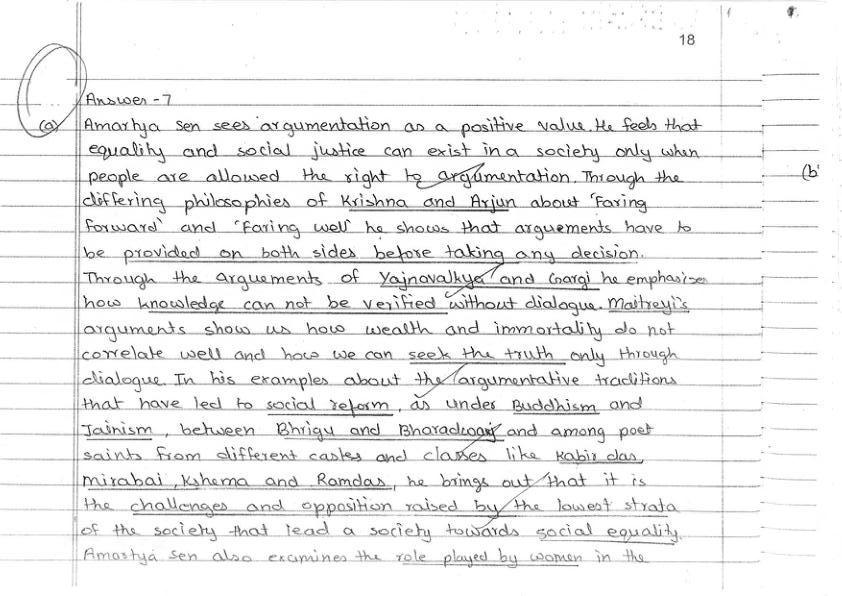 18
Answer - 7
(a) Amartya Sen sees argumentation as a positive value. He feels that
equality and social justice can exist in a society only when
people are allowed the right to argumentation. Through the
differing philosophies of Krishna and Arjun about 'Faring
forward' and 'Faring well' he shows that arguements have to
be provided on both sides before taking any decision.
Through the arguements of Yajnavalkya and Gargi he emphasises
how knowledge can not be verified without dialogue. Maitreyi's
arguments show us how wealth and immortality do not
correlate well and how we can seek the truth only through
dialogue. In his examples about the argumentative traditions
that have led to social reform, as under Buddhism and
Jainism, between Bhrigu and Bharadwaj and among poet
saints from different castes and classes like Kabir das,
mirabai, Kshema and Ramdas, he brings out that it is
the challenges and opposition raised by the lowest strata
of the society that lead a society towards social equality.
Amartya Sen also examines the role played by women in the
(b